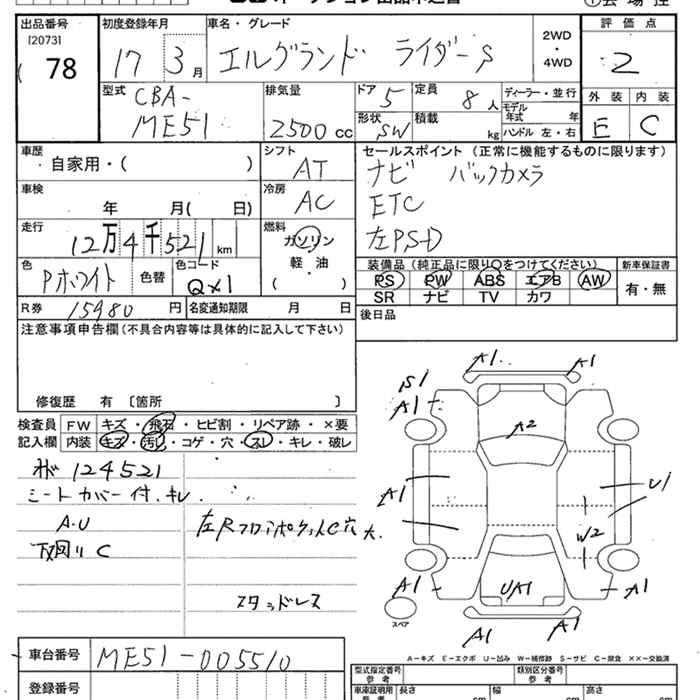 出品番号 初度登録年月 車名・グレード 2WD・4WD 評価点
[2073]
78 17 3月 エルグランド ライダーS 2
型式 排気量 ドア 定員 ディーラー・並行 外装 内装
CBA-
ME51 2500cc 5 8人 モデル年式 年
形状 SW 積載 kg ハンドル 左・右 E C
車歴 シフト セールスポイント (正常に機能するものに限ります)
・自家用・( ) AT ナビ バックカメラ
車検 冷房 ETC
年 月( 日) AC 左PSD
走行 燃料
12万4千521km ガソリン
軽・油
( )
色 Pホワイト 色替 色コード QX1
装備品 (純正品に限り〇をつけてください) 新車保証書
PS PW ABS エアB AW 有・無
SR ナビ TV カワ
R券 15980円 名変通知期限 月 日 後日品
注意事項申告欄 (不具合内容等は具体的に記入して下さい)
修復歴 有 〔箇所 〕
検査員 FW キズ・飛石・ヒビ割・リペア跡・×要
記入欄 内装 キズ・汚れ・コゲ・穴・スレ・キレ・破レ
124521
シートカバー付.キレ.
A.U
下回りC
スタッドレス
A1 A1
S1
A1
A2
A1 U1
W2
A1 UA1 A1
スペア
A1 A1
A-キズ E-エクボ U-凹み W-補修跡 S-サビ C-腐食 ××-交換済
車台番号 ME51-005510
登録番号
型式指定番号 参考 類別区分番号 参考
車庫証明用 参考 長さ cm 幅 cm 高さ cm